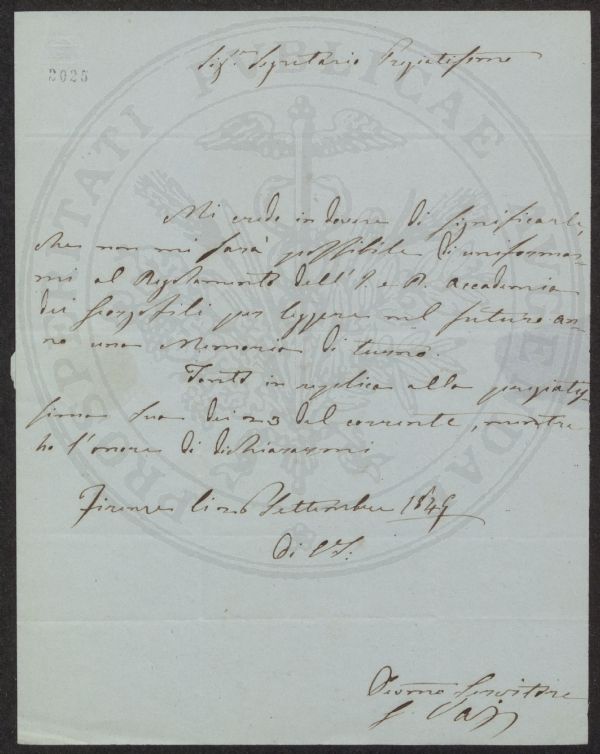 2025
Sig.r Segretario Pregiatissimo
Mi credo in dovere di significarle,
che non mi sarà possibile di uniformar-
mi al Regolamento dell'I. e R. Accademia
dei Georgofili per leggere nel futuro an-
no una Memoria di turno.
Tanto in replica alla pregiatis-
sima Sua dei 23 del corrente, mentre
ho l'onore di dichiararmi
Firenze li 26 Settembre 1849
Di V.S.
Devmo Servitore
G.
PROSPERITATI PUBLICAE AUGENDA